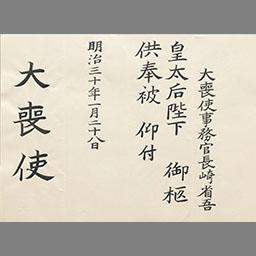 大喪使事務官長崎省吾
皇太后陛下 御柩
供奉被 仰付
明治三十年一月二十八日
大喪使